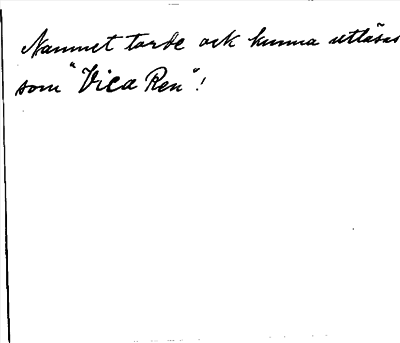 Namnet torde ock kunna utläsas
som "Vica Ren"!